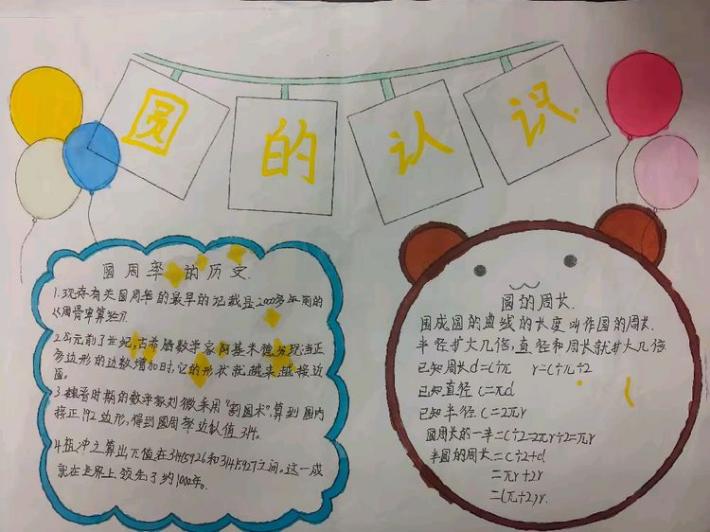 圆的认识
圆周率的历史
1.现存有关圆周率的最早的记载是2000多年周的
《周髀算经》.
2.公元前3世纪,古希腊数学家阿基米德发现:当正
多边形的边数增加时,它的形状就越来越接边
圆。
3.魏晋时期的数学家刘徽采用"割圆术",算到圆内
接正192边形,得到圆周率近似值3.14。
4.祖冲之算出π值在3.1415926和3.1415927之间。这一成
就在世界上领先了约1000年。
圆的周长
围成圆的曲线的长度叫作圆的周长.
半径扩大几倍,直径和周长就扩大几倍
已知周长d=C÷π r=C÷π÷2
已知直径C=πd
已知半径C=2πr
圆周长的一半=C÷2=2πr÷2=πr
半圆的周长=C÷2+d
=πr+2r
=(π+2)r.